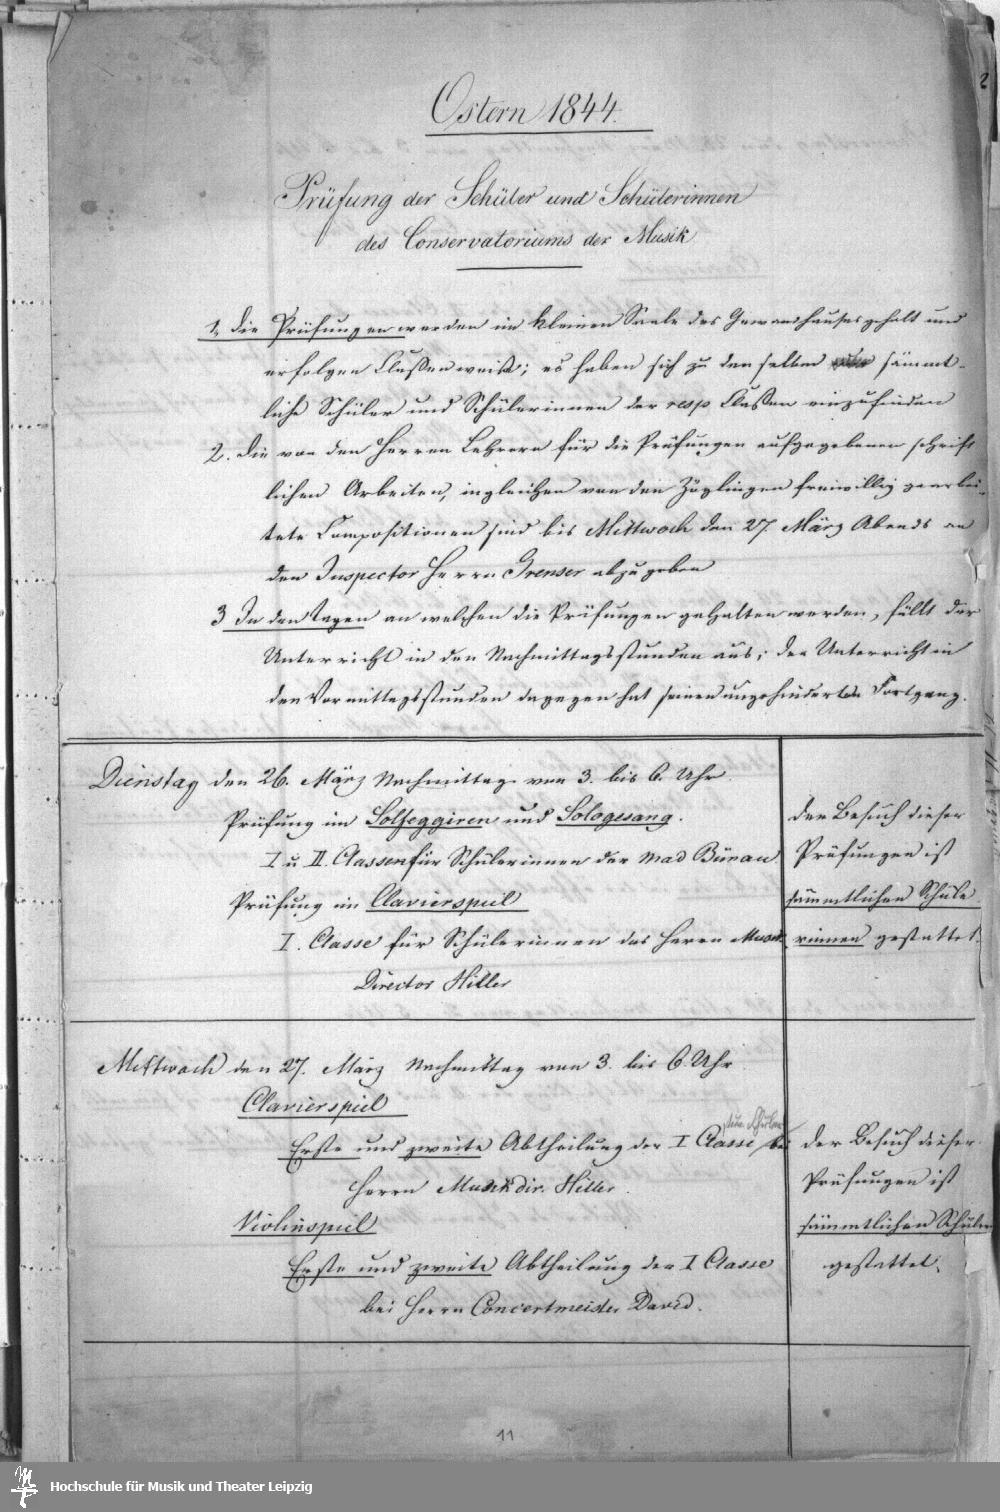 2
Ostern 1844.
Prüfung der Schüler und Schülerinnen
des Conservatoriums der Musik
1, Die Prüfungen werden im kleinen Saale des Gewandhauses gehalt und
erfolgen Classenweise; es haben sich zu denselben sämmt-
liche Schüler und Schülerinnen der resp Classen einzufinden
2. Die von den Herren Lehrern für die Prüfungen aufgegebenen schrift
lichen Arbeiten, ingleichen von den Zöglingen freiwillig gearbei-
tete Compositionen sind bis Mittwoch den 27. März Abends an
den Inspector Herrn Grenser abzugeben
3 In den Tagen an welchen die Prüfungen gehalten werden, fällt der
Unterricht in den Nachmittagsstunden aus; der Unterricht in
den Vormittagsstunden dagegen hat seinen ungehinderten Fortgang.
Dienstag den 26. März Nachmittag von 3. bis 6. Uhr.
Prüfung im Solfeggiren und Sologesang.
I u II. Classen für Schülerinnen der Mad Bünau
Prüfung im Clavierspiel
I. Classe für Schülerinnen des Herrn Musik
Director Hiller
der Besuch dieser
Prüfungen ist
sämmtlichen Schüle
rinnen gestattet.
Mittwoch den 27. März Nachmittag von 3. bis 6. Uhr
Clavierspiel
Erste und zweite Abtheilung der I Classe der Schüler bei
Herrn Musikdir. Hiller.
Violinspiel
Erste und zweite Abtheilung der I Classe
bei Herrn Concertmeister David.
der Besuch dieser
Prüfungen ist
sämmtlichen Schülern
gestattet.
11
Hochschule für Musik und Theater Leipzig